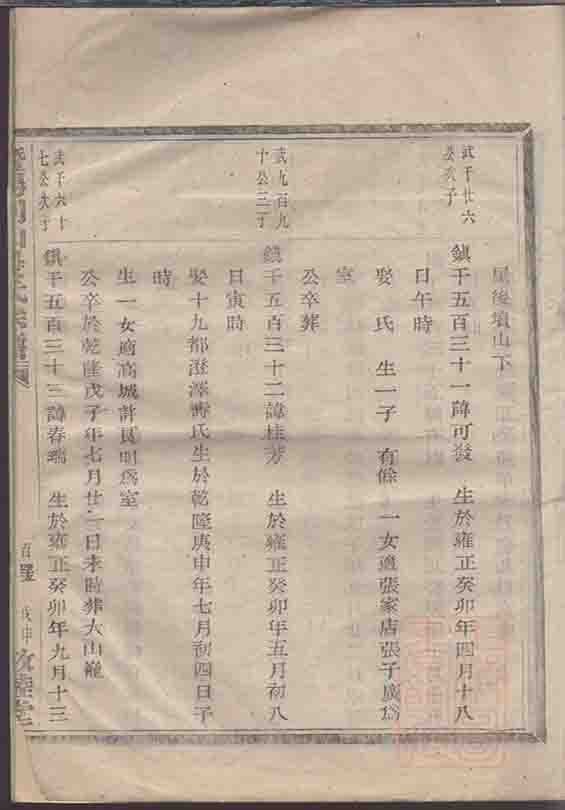 屋後墳山下
武千廿六
公次子
鎮千五百三十一諱可發 生於雍正癸卯年四月十八
日午時
娶 氏 生一子 有餘 一女適張家店張子廣為
室
公卒葬
武九百九
十公三子
鎮千五百三十二諱桂芳 生於雍正癸卯年五月初八
日寅時
娶十九都澄澤 氏生於乾隆庚申年七月初四日子
時
生一女適高城許 明為室
公卒於乾隆戊子年七月廿二日未時葬大山巔
武千六十
七公次子
鎮千五百三十三諱春瑞 生於雍正癸卯年九月十三
戊申 敦睦堂